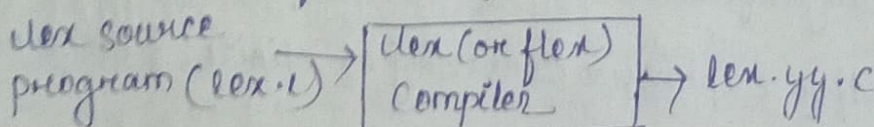 Lex source
program (lex.l)
Lex (or flex)
Compiler
lex.yy.c